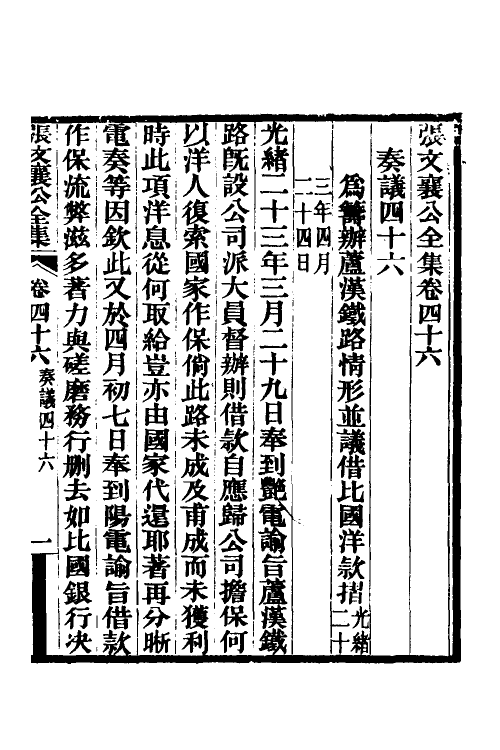 張文襄公全集卷四十六
奏議四十六
爲籌辦蘆漢鐵路情形並議借比國洋款摺光緒二十
三年四月
二十四日
光緒二十三年三月二十九日奉到豔電諭旨蘆漢鐵
路旣設公司派大員督辦則借款自應歸公司擔保何
以洋人復索國家作保倘此路未成及甫成而未獲利
時此項洋息從何取給豈亦由國家代還耶著再分晰
電奏等因欽此又於四月初七日奉到陽電諭旨借款
作保流弊滋多著力與磋磨務行刪去如比國銀行决
張文襄公全集 卷四十六 奏議四十六 一